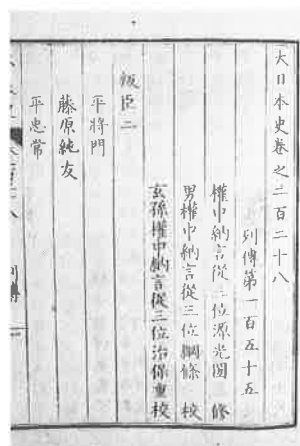 大日本史卷之二百二十八
列傳第一百五十五
權中納言從三位源光圀 修
男權中納言從三位綱條 校
玄孫權中納言從三位治保重校
叛臣二
平將門
藤原純友
平忠常